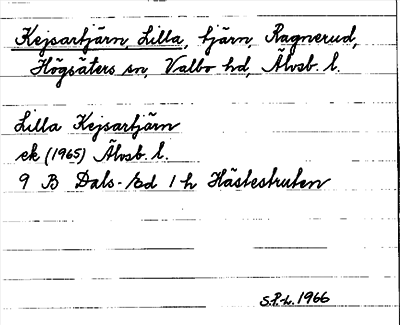 Kejsartjärn, Lilla, tjärn, Ragnerud,
Högsäters sn, Valbo hd, Älvsb. l.
Lilla Kejsartjärn
ek (1965) Älvsb. l.
9 B Dals-Ed 1 h Hästestruten
S.P.L. 1966